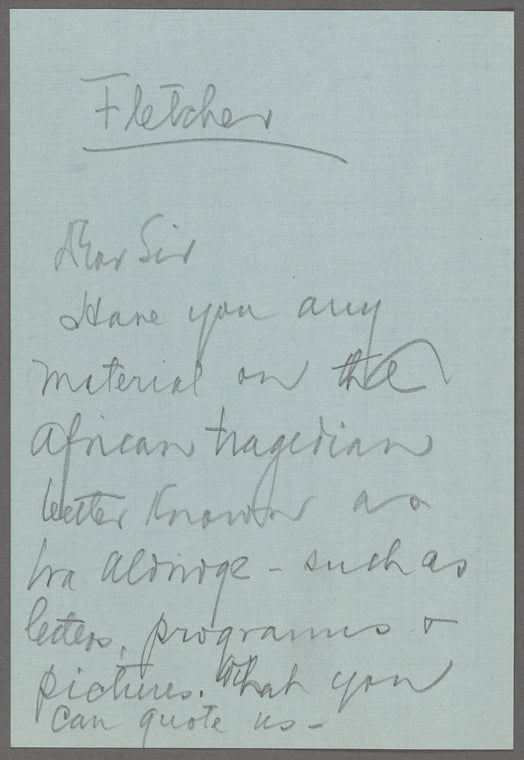 Fletcher
Dear Sir
Have you any
material on the
African tragedian
better known as
Ira Aldridge - such as
letters, programs &
pictures. What you
can quote us -